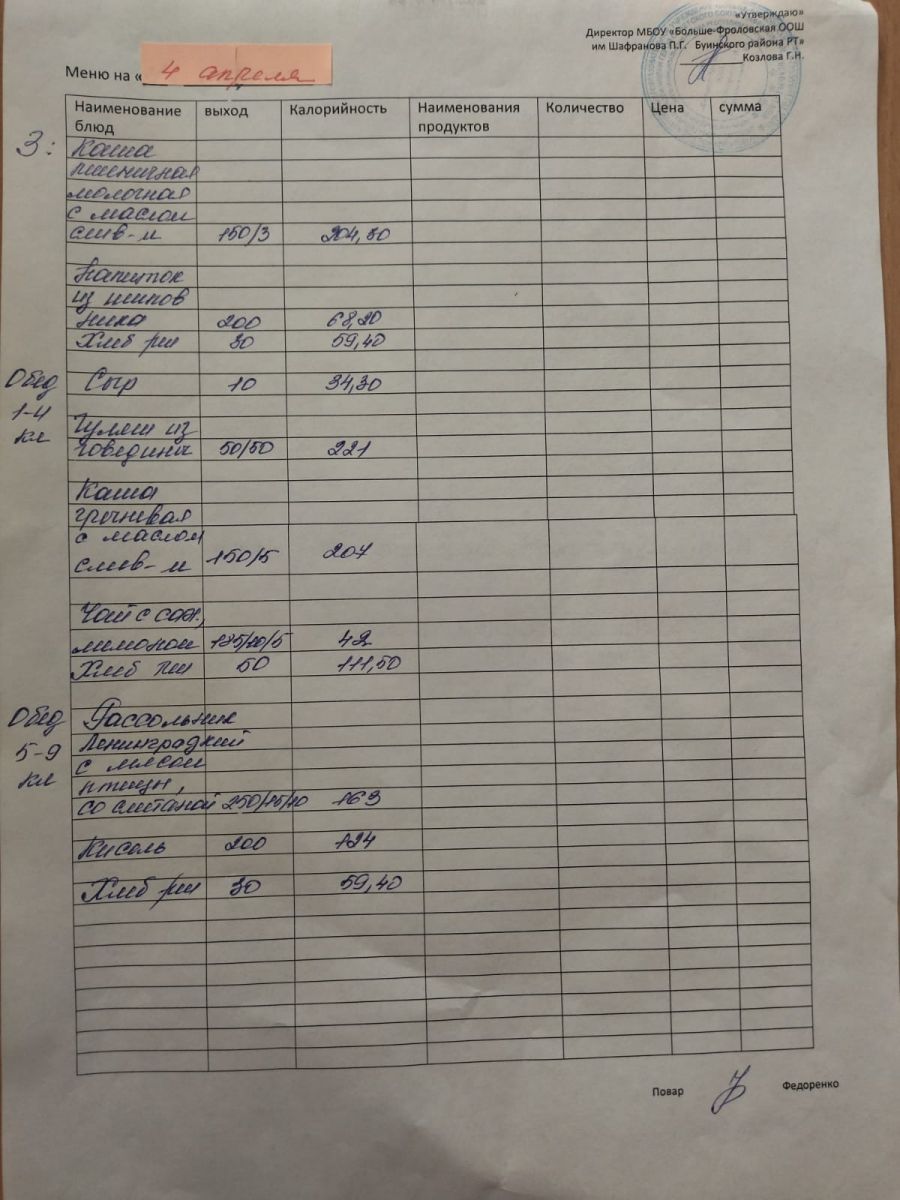 «Утверждаю»
Директор МБОУ «Больше-Фроловская ООШ
им Шафранова П.Г. Буинского района РТ»
Козлова Г.Н.
Меню на « 4 апреля
Наименование блюд выход Калорийность Наименования продуктов Количество Цена сумма
З: Каша
пшеничная
молочная
с маслом
слив-м 150/3 204,30
Напиток
из шипов
ника 200 68,20
Хлеб рж 30 59,40
Обед Сыр 10 34,30
1-4
кл
Гуляш из
говядины 50/50 221
Каша
гречневая
с маслом
слив-м 150/5 207
Чай с сах,
лимоном 185/10/5 42
Хлеб рж 50 111,50
Обед Рассольник
5-9 Ленинградский
кл с мясом
птицы,
со сметаной 250/15/10 163
Кисель 200 124
Хлеб рж 30 59,40
Повар Федоренко